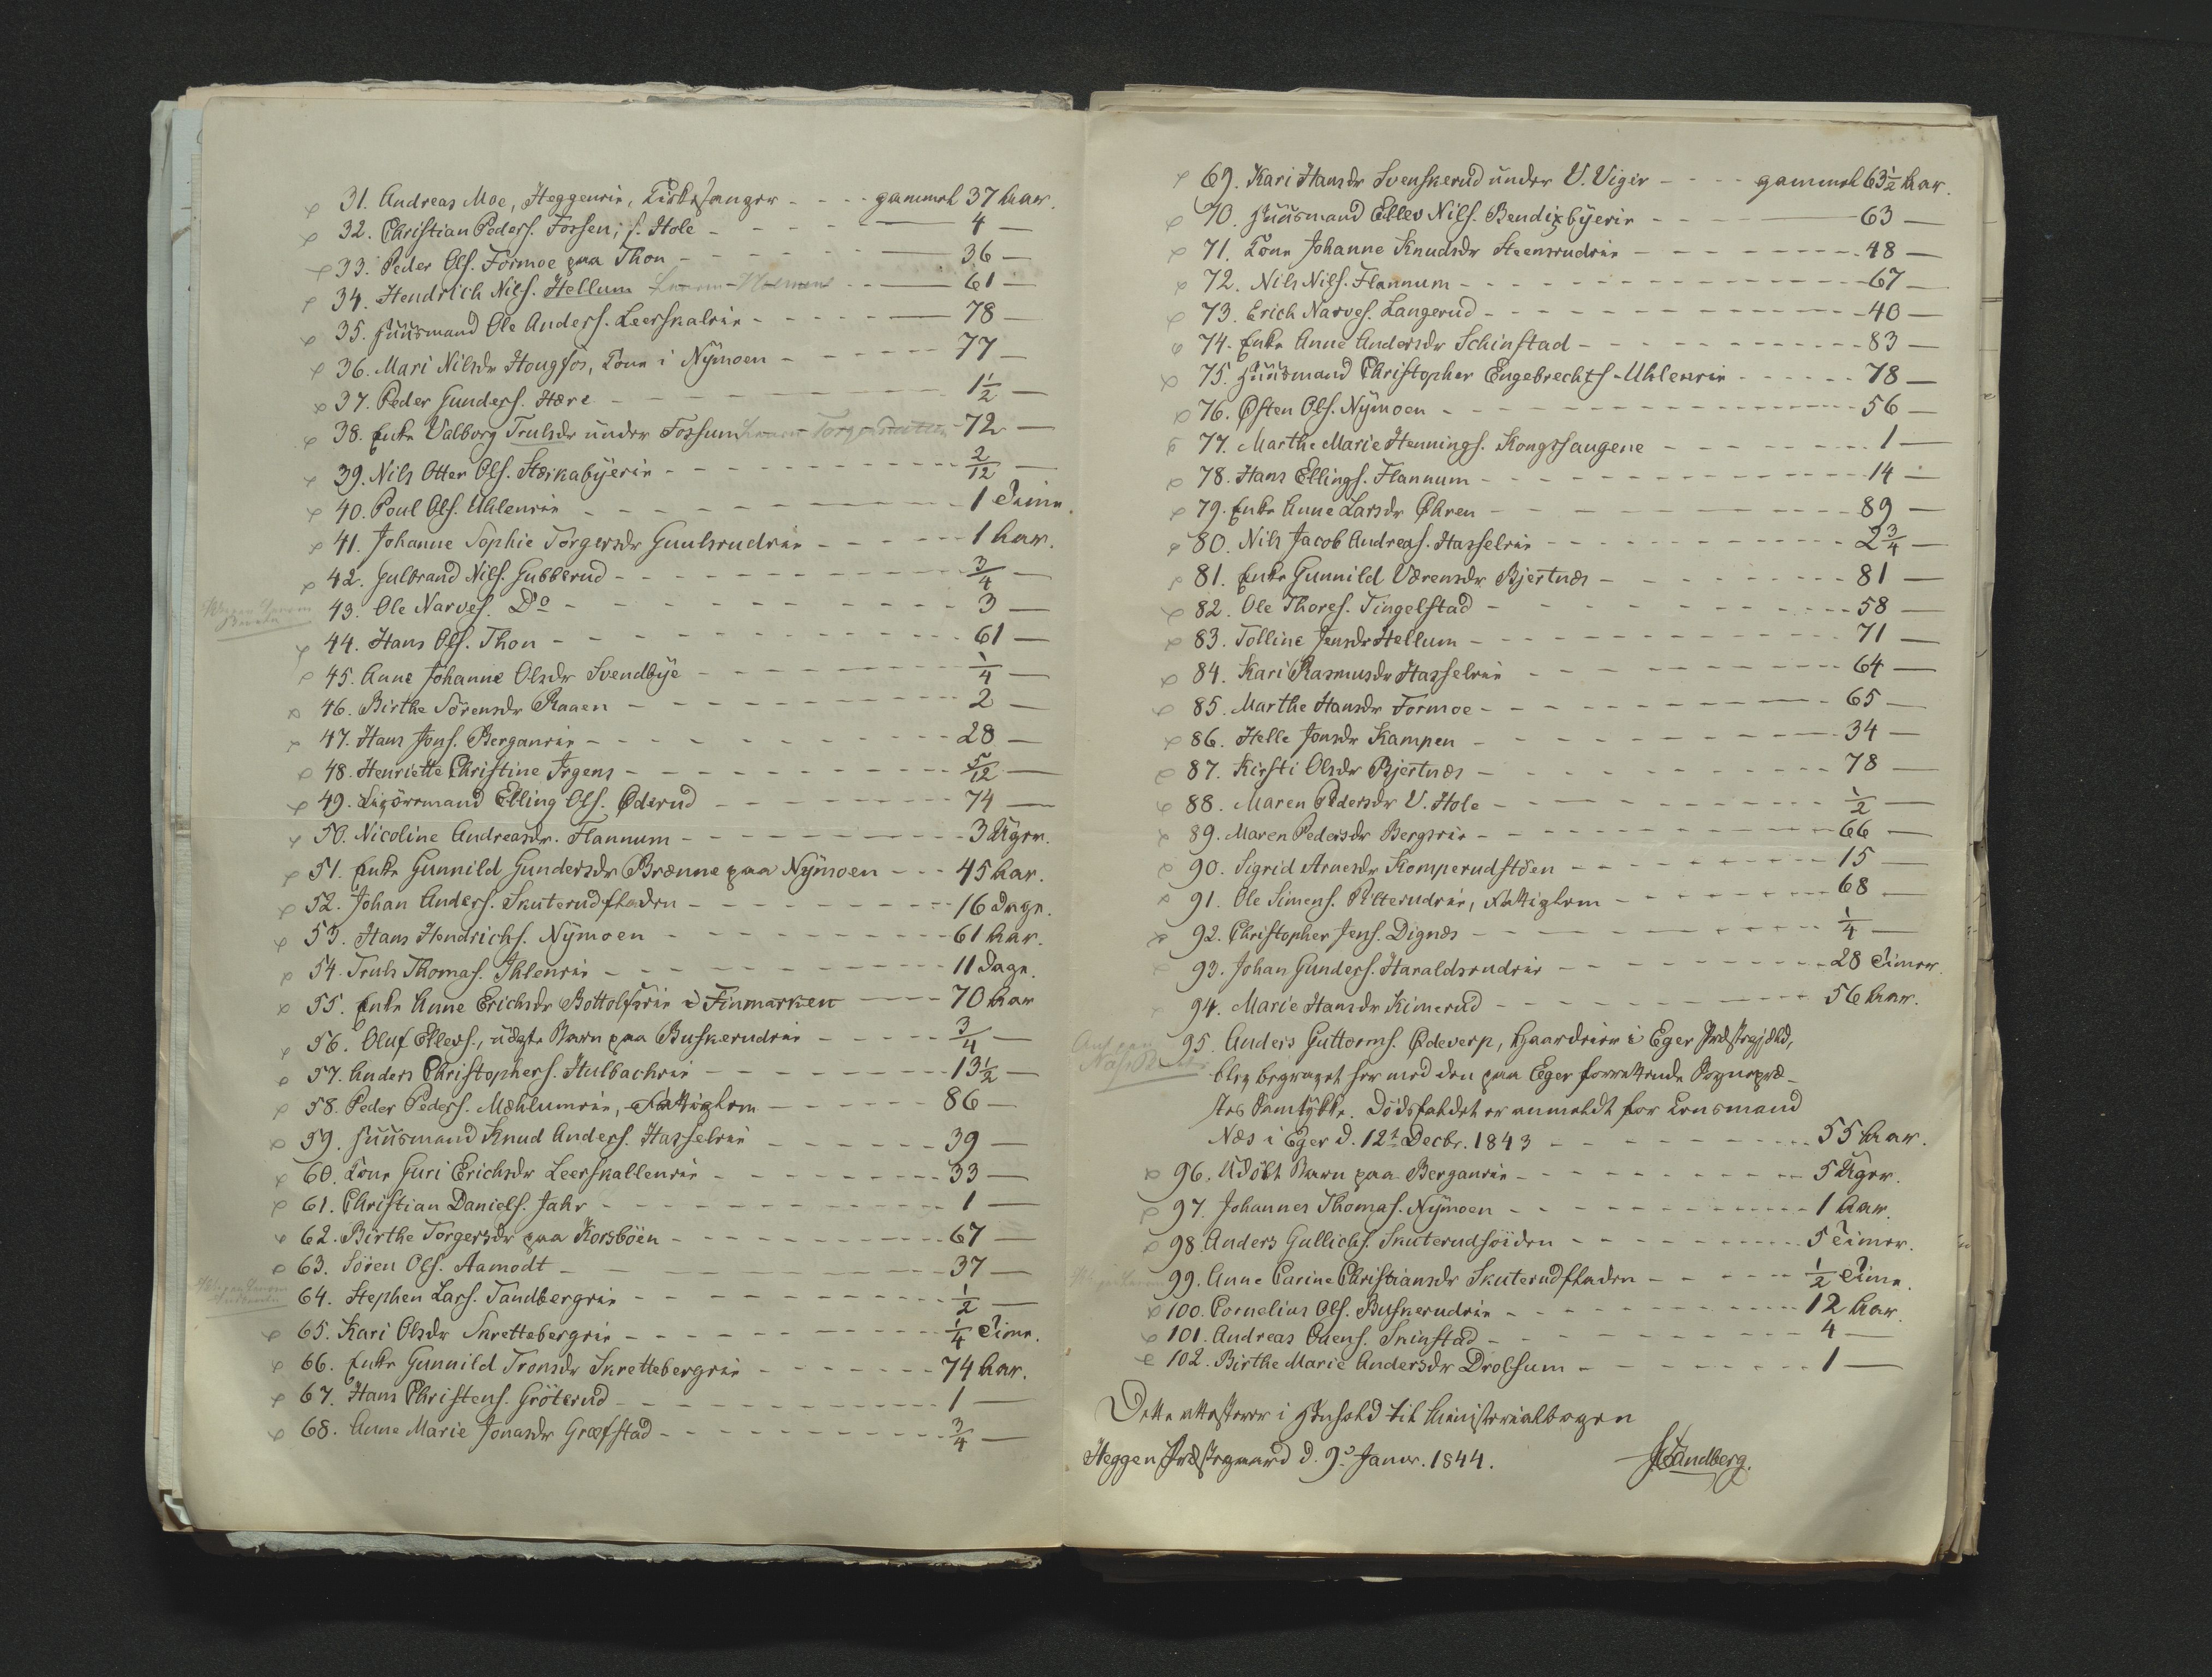 31. Andreas Moe, Heggeneie, Kirkesanger - - - - gammel 37 Aar.
32. Christian Peders. Fossen, s. Hole - - - - 4 —
33. Peder Ols. Formoe paa Thon - - - - 36 —
34. Hendrich Nils. Hellum - - - - 61 —
35. Huusmand Ole Anders. Leerskaleie - - - - 78 —
36. Mari Nilsdr Hougfos, Kone i Nymoen - - - - 77 —
37. Peder Gunders. Hære - - - - 1½ —
38. Enke Valborg Trulsdr under Fossum - 72 —
39. Nils Otter Ols. Stærkabyeeie - - - - 2/12 —
40. Poul Ols. Uhleneie - - - - 1 Time.
41. Johanne Sophie Torgersdr Guulsrudeie - - - - 1 Aar.
42. Gulbrand Nils. Gubberud - - - - 3/4 —
43. Ole Narves. Do - - - - 3 —
44. Hans Ols. Thon - - - - 61 —
45. Anne Johanne Olsdr Svendbye - - - - 1/4 —
46. Birthe Sörensdr Raaen - - - - 2 —
47. Hans Jons. Berganeie - - - - 28 —
48. Henriette Christine Irgens - - - - 5/12 —
49. Ligörsmand Elling Ols. Öderud - - - - 74 —
50. Nicoline Andreasdr. Flannum - - - - 3 Uger.
51. Enke Gunnild Gundersdr Brænne paa Nymoen - - - 45 Aar.
52. Johan Anders. Skuterudfladen - - - - 16 Dage.
53. Hans Hendrichs. Nymoen - - - - 61 Aar.
54. Truls Thomas. Ihleneie - - - - 11 Dage.
55. Enke Anne Erichsdr Bottolfseie i Finmarken - - 70 Aar
56. Oluf Ellevs., uægte Barn paa Buskerudeie - - - - 3/4 —
57. Anders Christophers. Hulbacheie - - - - 13½ —
58. Peder Peders. Mæhlumeie, Fattiglem - - - - 86 —
59. Huusmand Knud Anders. Hasseleie - - - - 39 —
60. Kone Guri Erichsdr Leerskalleneie - - - - 33 —
61. Christian Daniels. Jahr - - - - 1 —
62. Birthe Torgersdr paa Korsböen - - - - 67 —
63. Sören Ols. Aamodt - - - - 37 —
64. Stephen Lars. Tandbergeie - - - - ½ —
65. Kari Olsdr Skrettebergeie - - - - ¼ Time.
66. Enke Gunnild Tronsdr Skrettebergeie - - - - 74 Aar.
67. Hans Christens. Gröterud - - - - 1 —
68. Anne Marie Jonasdr Græfstad - - - - 3/4 —
69. Kari Hansdr Svenskerud under V. Viger - - - - gammel 63½ Aar.
70. Huusmand Ellev Nils. Bendixbyeeie - - - - 63 —
71. Kone Johanne Knudsdr Steensrudeie - - - - 48 —
72. Nils Nils. Flannum - - - - 67 —
73. Erich Narves. Langerud - - - - 40 —
74. Enke Anne Andersdr Schinstad - - - - 83 —
75. Huusmand Christopher Engebrechts. Uhleneie - - - - 78 —
76. Östen Ols. Nymoen - - - - 56 —
77. Marthe Marie Hennings. Kongshaugene - - - - 1 —
78. Hans Ellings. Flannum - - - - 14 —
79. Enke Anne Larsdr Öhren - - - - 89 —
80. Nils Jacob Andreas. Hasseleie - - - - 2 3/4 —
81. Enke Gunnild Værensdr Bjertnæs - - - - 81 —
82. Ole Thores. Tingelstad - - - - 58 —
83. Tolline Jensdr Hellum - - - - 71 —
84. Kari Rasmusdr Hasseleie - - - - 64 —
85. Marthe Hansdr Formoe - - - - 65 —
86. Helle Jonsdr Kampen - - - - 34 —
87. Kirsti Olsdr Bjertnæs - - - - 78 —
88. Maren Pedersdr V. Hole - - - - ½ —
89. Maren Pedersdr Bergseie - - - - 66 —
90. Sigrid Arnesdr Komperudstöen - - - - 15 —
91. Ole Simens. Pilterudeie, Fattiglem - - - - 68 —
92. Christopher Jens. Dignæs - - - - ¼ —
93. Johan Gunders. Haraldsrudeie - - - - 28 Timer.
94. Marie Hansdr Kimerud - - - - 56 Aar.
95. Anders Guttorms. Ödeverp, Gaardeier i Eger Præstegjeld,
blev begravet her med den paa Eger forrettende Sognepræ-
stes Samtykke. Dödsfaldet er anmeldt for Lensmand
Næs i Eger d. 12te Decbr. 1843 - - - - 55 Aar.
96. Udöbt Barn paa Berganeie - - - - 5 Uger.
97. Johannes Thomas. Nymoen - - - - 1 Aar.
98. Anders Gullichs. Skuterudsöiden - - - - 5 Timer.
99. Anne Carine Christiansdr Skuterudfladen - - - - ½ Time.
100. Cornelius Ols. Buskerudeie - - - - 12 Aar.
101. Andreas Ouens. Skinstad - - - - 4 —
102. Birthe Marie Andersdr Drolsum - - - - 1 —
Dette attesterer i Henhold til Ministerialbogen
Heggen Præstegaard d. 9de Januar. 1844.
Sandberg.